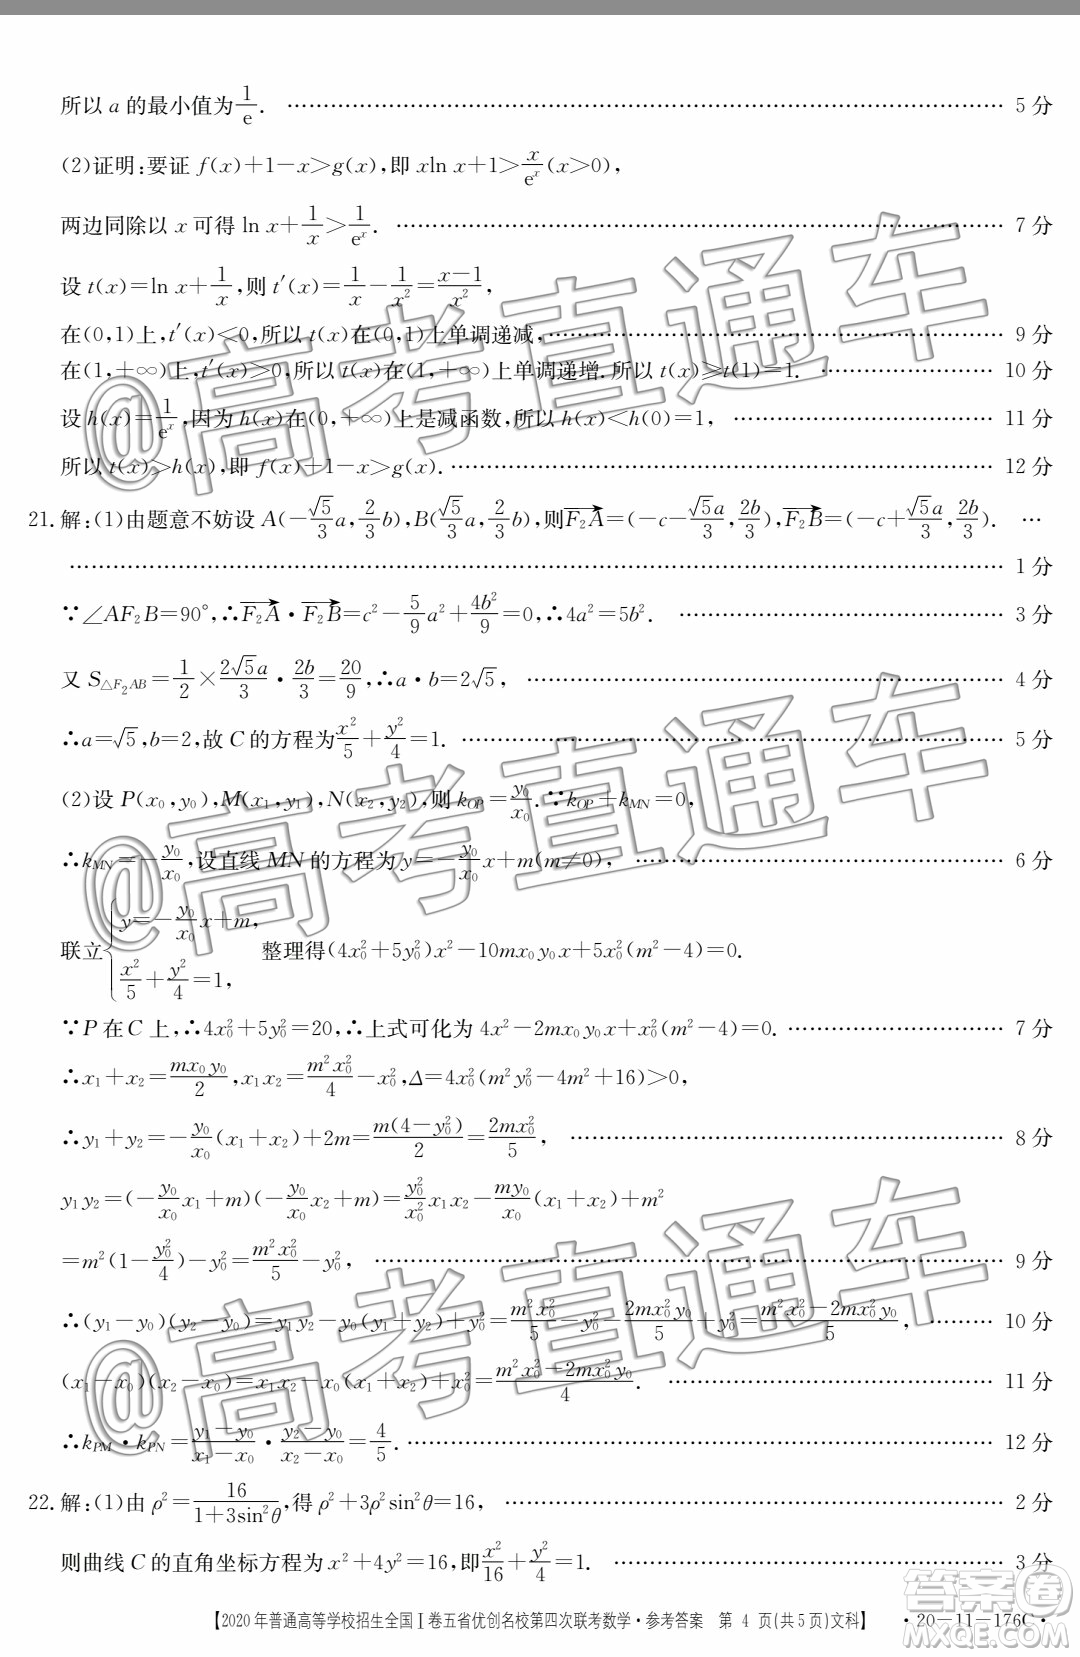 所以 a 的最小值为1/e. …… 5 分
(2)证明:要证 f(x)+1−x>g(x),即 xln x+1>x/eˣ(x>0),
两边同除以 x 可得 ln x+1/x>1/eˣ. …… 7 分
设 t(x)=ln x+1/x,则 t′(x)=1/x−1/x²=(x−1)/x²,
在(0,1)上,t′(x)<0,所以 t(x)在(0,1)上单调递减, …… 9 分
在(1,+∞)上,t′(x)>0,所以 t(x)在(1,+∞)上单调递增.所以 t(x)≥t(1)=1. …… 10 分
设 h(x)=1/eˣ,因为 h(x)在(0,+∞)上是减函数,所以 h(x)<h(0)=1, …… 11 分
所以 t(x)>h(x),即 f(x)+1−x>g(x). …… 12 分
21.解:(1)由题意不妨设 A(−√5/3 a,2/3 b),B(√5/3 a,2/3 b),则F₂A→=(−c−√5a/3,2b/3),F₂B→=(−c+√5a/3,2b/3). …
…… 1 分
∵∠AF₂B=90°,∴F₂A→·F₂B→=c²−5/9 a²+4b²/9=0,∴4a²=5b². …… 3 分
又 S△F₂AB=1/2×2√5a/3·2b/3=20/9,∴a·b=2√5, …… 4 分
∴a=√5,b=2,故 C 的方程为x²/5+y²/4=1. …… 5 分
(2)设 P(x₀,y₀),M(x₁,y₁),N(x₂,y₂),则 kOP=y₀/x₀.∵kOP+kMN=0,
∴kMN=−y₀/x₀,设直线 MN 的方程为 y=−y₀/x₀ x+m(m≠0), …… 6 分
联立{y=−y₀/x₀ x+m, x²/5+y²/4=1, 整理得(4x₀²+5y₀²)x²−10mx₀y₀x+5x₀²(m²−4)=0.
∵P 在 C 上,∴4x₀²+5y₀²=20,∴上式可化为 4x²−2mx₀y₀x+x₀²(m²−4)=0. …… 7 分
∴x₁+x₂=mx₀y₀/2,x₁x₂=m²x₀²/4−x₀²,Δ=4x₀²(m²y₀²−4m²+16)>0,
∴y₁+y₂=−y₀/x₀(x₁+x₂)+2m=m(4−y₀²)/2=2mx₀²/5, …… 8 分
y₁y₂=(−y₀/x₀ x₁+m)(−y₀/x₀ x₂+m)=y₀²/x₀² x₁x₂−my₀/x₀(x₁+x₂)+m²
=m²(1−y₀²/4)−y₀²=m²x₀²/5−y₀², …… 9 分
∴(y₁−y₀)(y₂−y₀)=y₁y₂−y₀(y₁+y₂)+y₀²=m²x₀²/5−y₀²−2mx₀²y₀/5+y₀²=(m²x₀²−2mx₀²y₀)/5, …… 10 分
(x₁−x₀)(x₂−x₀)=x₁x₂−x₀(x₁+x₂)+x₀²=(m²x₀²−2mx₀²y₀)/4. …… 11 分
∴kPM·kPN=(y₁−y₀)/(x₁−x₀)·(y₂−y₀)/(x₂−x₀)=4/5. …… 12 分
22.解:(1)由 ρ²=16/(1+3sin²θ),得 ρ²+3ρ²sin²θ=16, …… 2 分
则曲线 C 的直角坐标方程为 x²+4y²=16,即x²/16+y²/4=1. …… 3 分
【2020 年普通高等学校招生全国Ⅰ卷五省优创名校第四次联考数学·参考答案 第 4 页(共 5 页)文科】 ·20−11−176C·
@高考直通车
@高考直通车
@高考直通车
答案圈
MXQE.COM